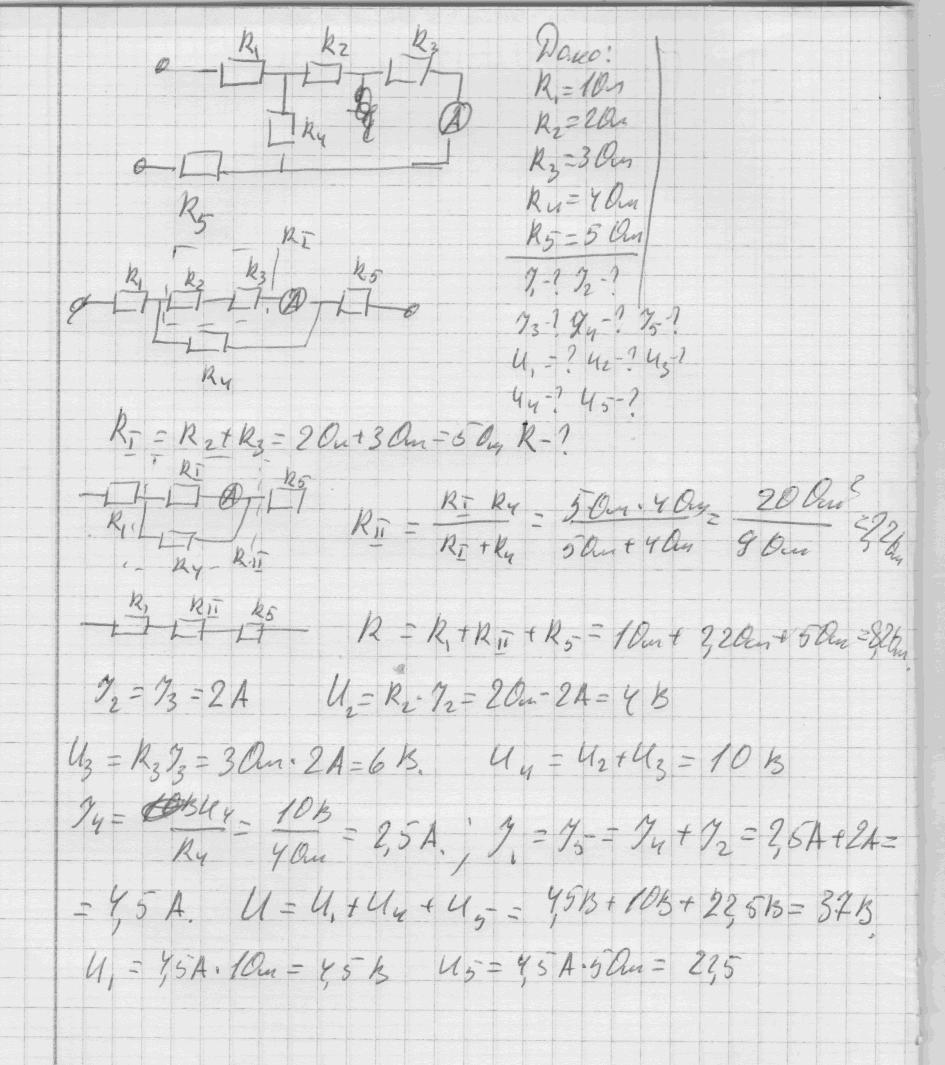 R₁ R₂ R₃
A
R₄
R₅
Дано:
R₁=1Ом
R₂=2Ом
R₃=3Ом
R₄=4Ом
R₅=5Ом
I₁-? I₂-?
I₃-? I₄-? I₅-?
U₁=? U₂-? U₃-?
U₄-? U₅-?
R-?
R_I
R₁ R₂ R₃ A R₅
R₄
R_I = R₂+R₃=2Ом+3Ом=5Ом
R₁ R_I A R₅
R₄ R_II
R_II = R_I R₄ / R_I+R₄ = 5Ом·4Ом / 5Ом+4Ом = 20Ом² / 9Ом =2,2Ом
R₁ R_II R₅
R = R₁+R_II+R₅=1Ом+2,2Ом+5Ом=8,2Ом.
I₂=I₃=2А U₂=R₂·I₂=2Ом·2А=4В
U₃=R₃I₃=3Ом·2А=6В. U₄=U₂+U₃=10В
I₄= U₄ / R₄ = 10В / 4Ом = 2,5А.; I₁=I₅=I₄+I₂=2,5А+2А=
=4,5А. U=U₁+U₄+U₅=4,5В+10В+22,5В=37В,
U₁=4,5А·1Ом=4,5В U₅=4,5А·5Ом=22,5